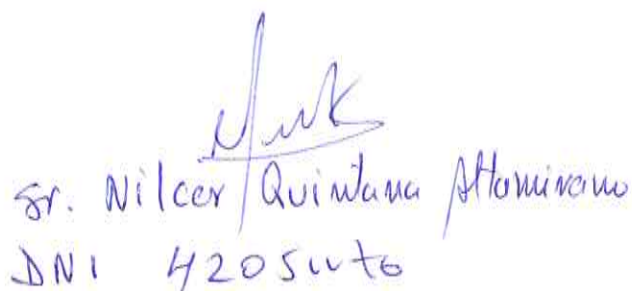 Sr. Nilcer Quintana Altamirano
DNI